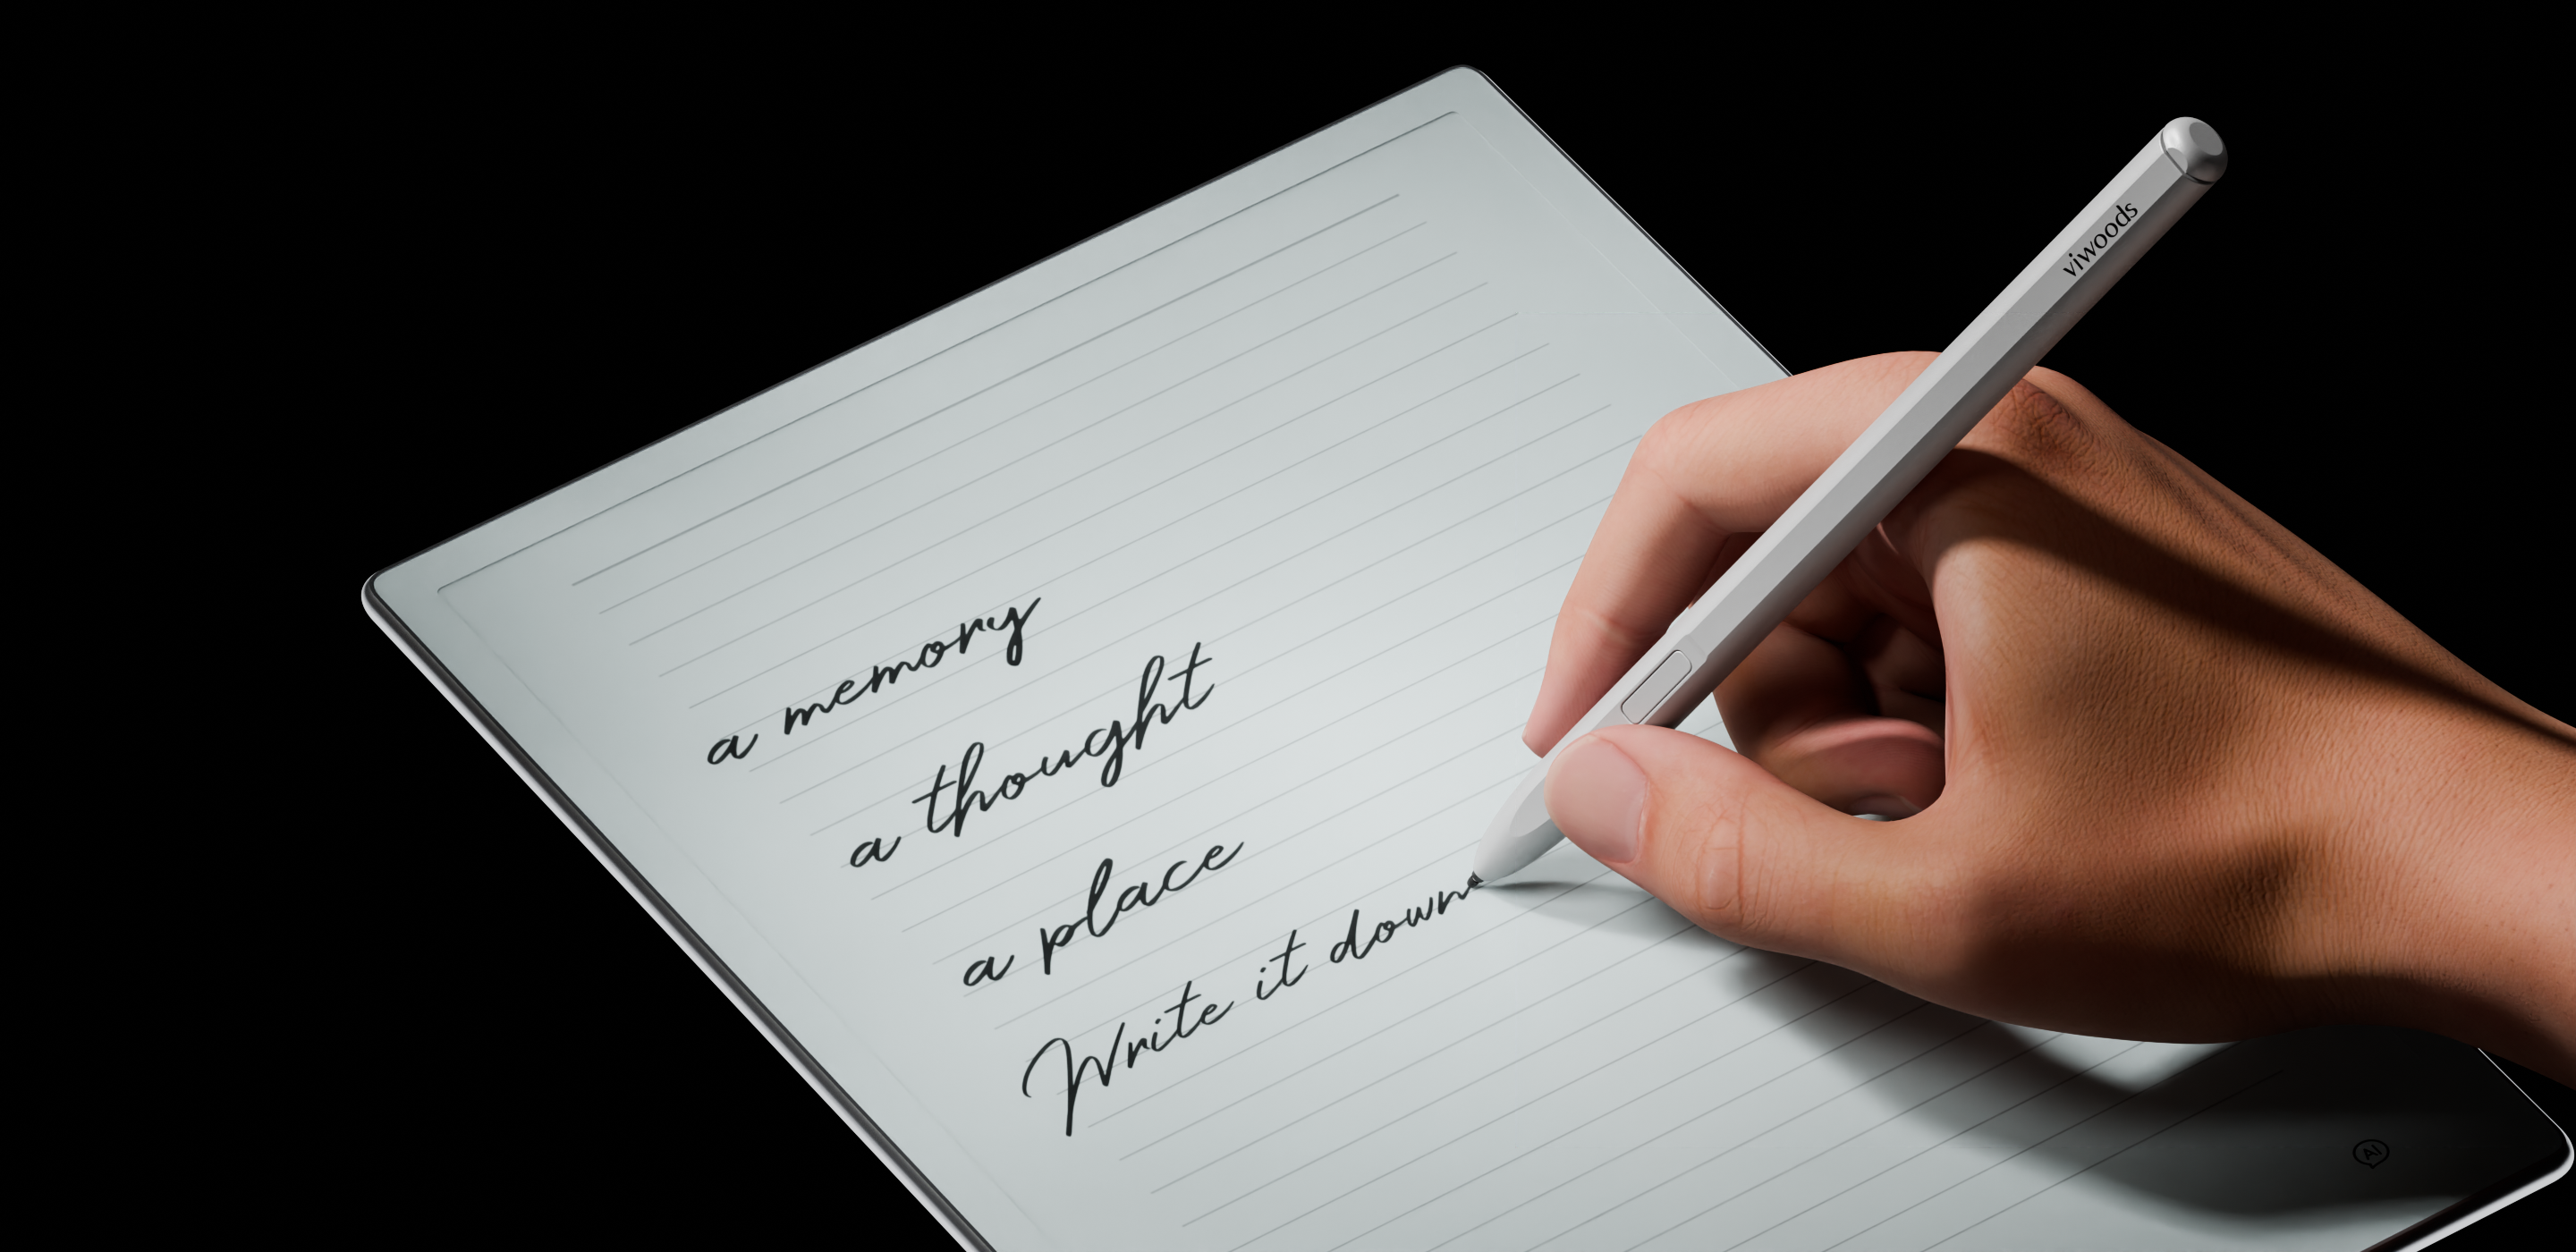 viwoods
a memory
a thought
a place
Write it down
AI